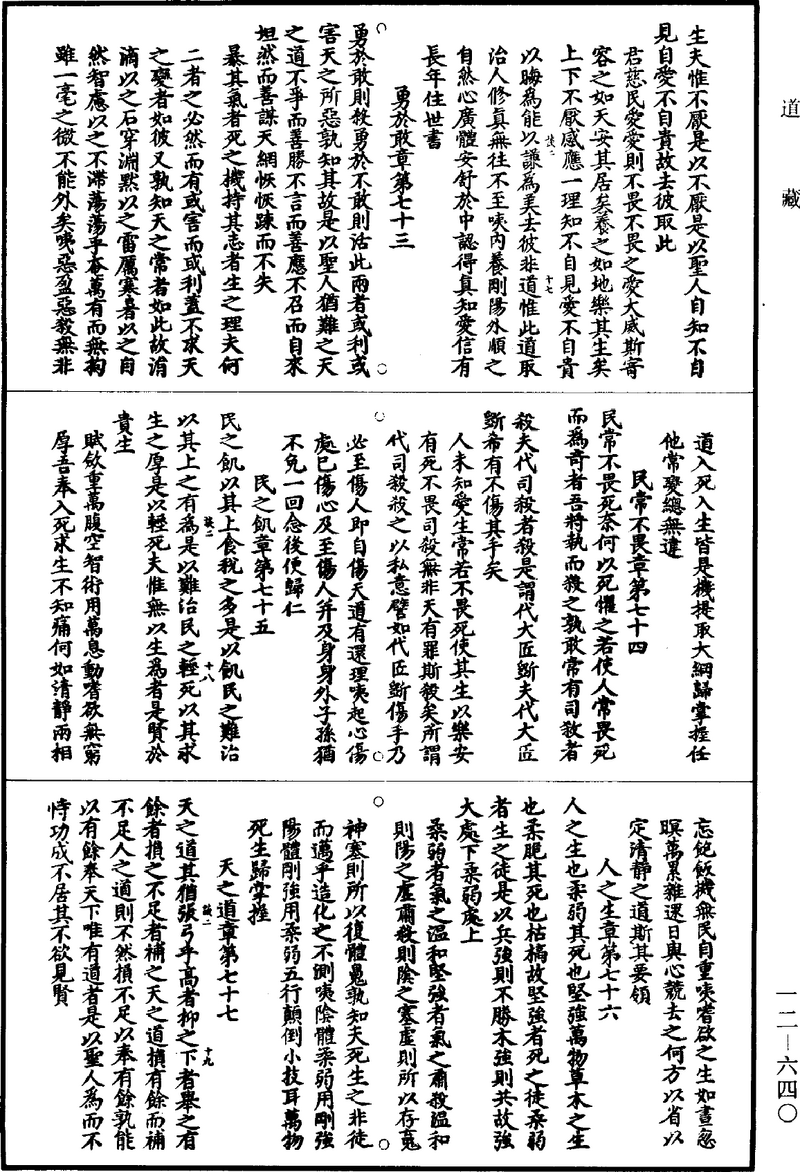 道藏
生夫惟不厭是以不厭是以聖人自知不自
見自愛不自貴故去彼取此
君慈民愛愛則不畏不畏之愛大威斯寄
容之如天安其居矣養之如地樂其生矣
上下不厭感應一理知不自見愛不自貴
以晦爲能以謙爲美去彼非道惟此道取
談二
十七
治人修眞無往不至咦内養剛陽外順之
自然心廣體安舒於中認得眞知愛信有
長年住世書
勇於敢章第七十三
勇於敢則殺勇於不敢則活此兩者或利或
害天之所惡孰知其故是以聖人猶難之天
之道不爭而善勝不言而善應不召而自來
坦然而善謀天網恢恢踈而不失
暴其氣者死之機持其志者生之理夫何
二者之必然而有或害而或利蓋不求天
之變者如彼又孰知天之常者如此故涓
滴以之石穿淵默以之雷厲寒暑以之自
然智應以之不滯蕩蕩乎奄萬有而無掏
雖一毫之微不能外矣咦惡盈惡殺無非
道入死入生皆是機提取大綱歸掌握任
他常變總無違
民常不畏章第七十四
民常不畏死奈何以死懼之若使人常畏死
而爲奇者吾將執而殺之孰敢常有司殺者
殺夫代司殺者殺是謂代大匠斲夫代大匠
斲希有不傷其手矣
人未知愛生常若不畏死使其生以樂安
有死不畏司殺無非天有罪斯殺矣所謂
代司殺殺之以私意譬如代匠斲傷手乃
必至傷人即自傷天道有還理咦起心傷
處已傷心及至傷人并及身身外子孫猶
不免一回念後便歸仁
民之飢章第七十五
民之飢以其上食稅之多是以飢民之難治
以其上之有爲是以難治民之輕死以其求
談二
十八
生之厚是以輕死夫惟無以生爲者是賢於
貴生
賦斂重萬腹空智術用萬息動嗜欲無窮
厚吾奉入死求生不知痛何如清靜兩相
忘飽飲機無民自重咦嗜欲之生如晝忽
瞑萬累雜遝日與心競去之何方以省以
定清靜之道斯其要領
人之生章第七十六
人之生也柔弱其死也堅強萬物草木之生
也柔脆其死也枯槁故堅強者死之徒柔弱
者生之徒是以兵強則不勝木強則共故強
大處下柔弱處上
柔弱者氣之溫和堅強者氣之肅殺溫和
則陽之虛肅殺則陰之塞虛則所以存䰟
神塞則所以復體鬼孰知天死生之非徒
而邁乎造化之不測咦陰體柔弱用剛強
陽體剛強用柔弱五行顛倒小技耳萬物
死生歸掌握
天之道章第七十七
天之道其猶張弓乎高者抑之下者舉之有
談二
十九
餘者損之不足者補之天之道損有餘而補
不足人之道則不然損不足以奉有餘孰能
以有餘奉天下唯有道者是以聖人爲而不
恃功成不居其不欲見賢
一二—六四〇